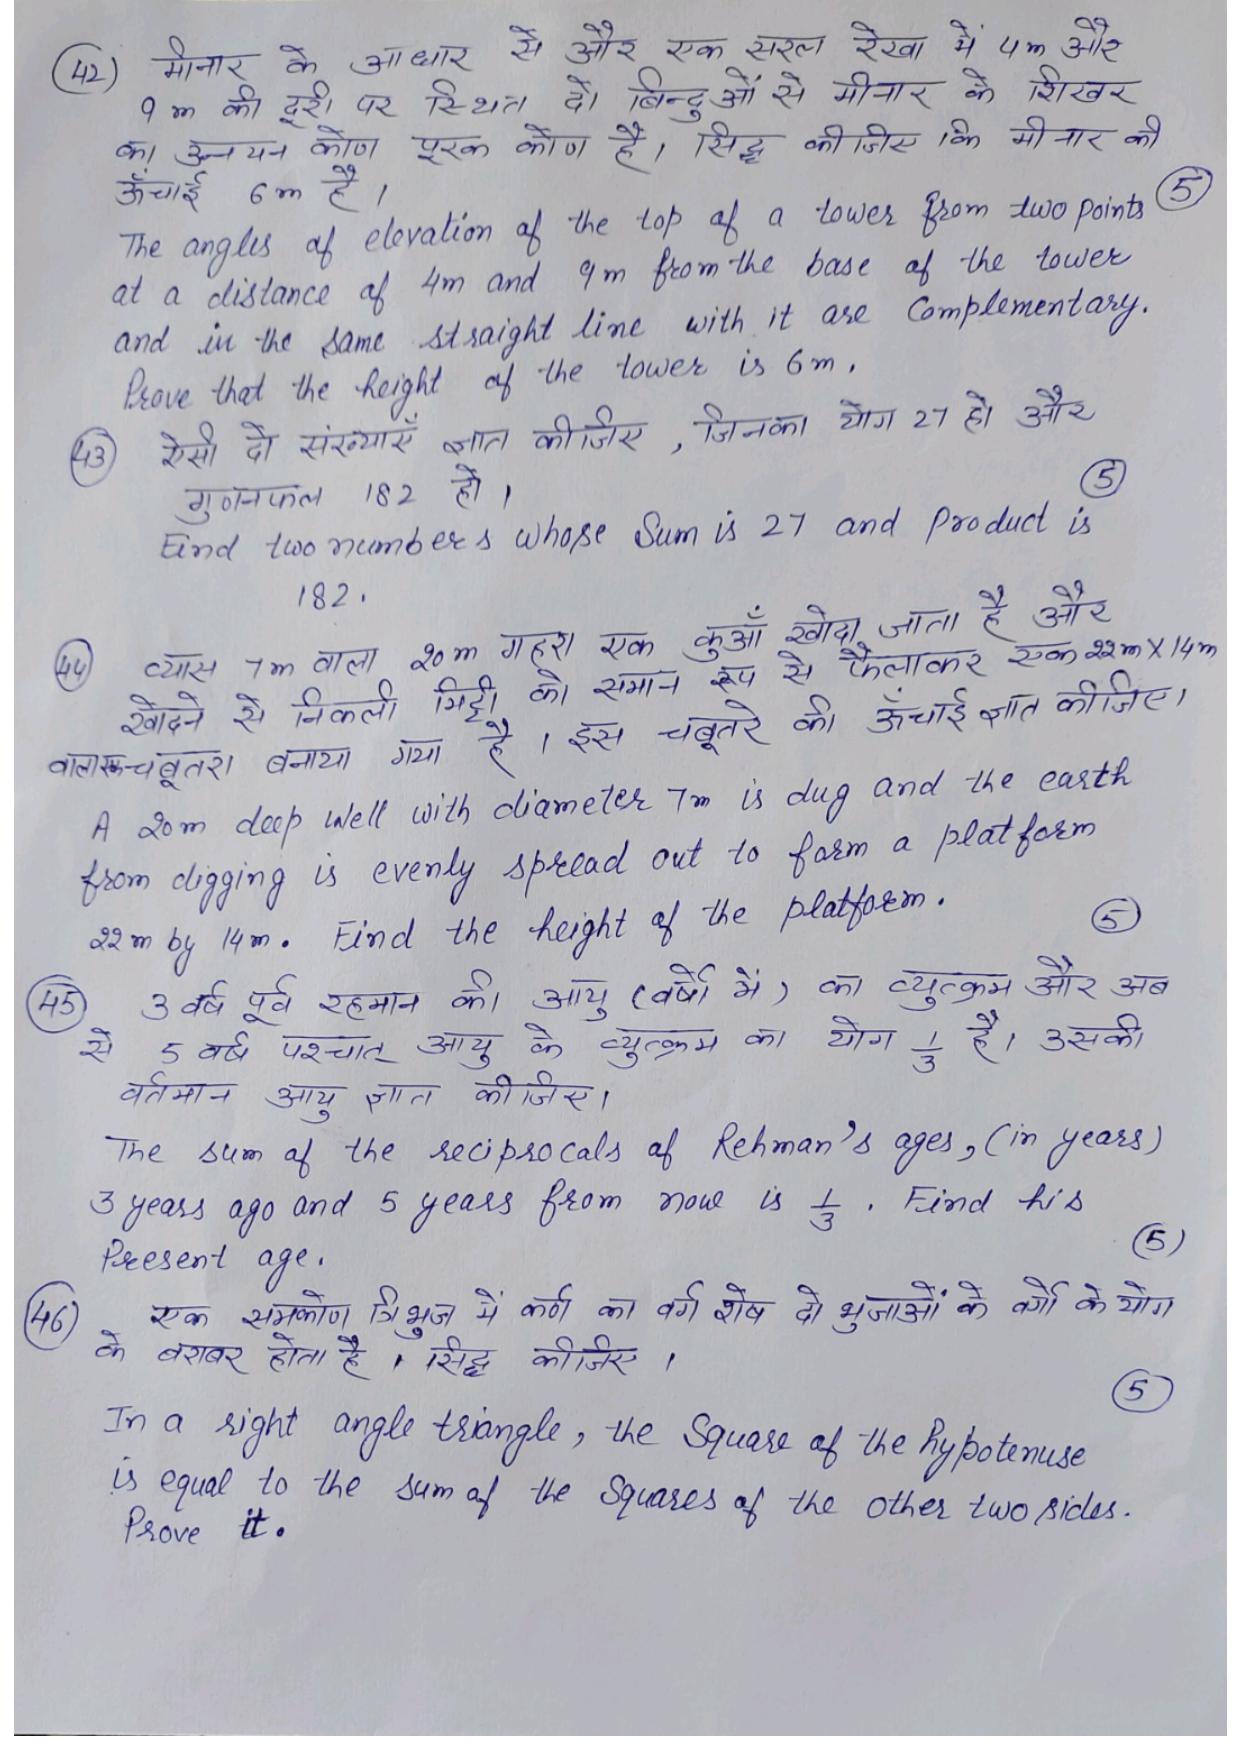 (42) मीनार के आधार से और एक सरल रेखा में 4m और
9m की दूरी पर स्थित दो बिन्दुओं से मीनार के शिखर
का उन्नयन कोण पूरक कोण है। सिद्ध कीजिए कि मीनार की
ऊँचाई 6m है। (5)
The angles of elevation of the top of a tower from two points
at a distance of 4m and 9m from the base of the tower
and in the same straight line with it are Complementary.
Prove that the height of the tower is 6m.
(43) ऐसी दो संख्याएँ ज्ञात कीजिए, जिनका योग 27 हो और
गुणनफल 182 हो। (5)
Find two numbers whose Sum is 27 and Product is
182.
(44) व्यास 7m वाला 20m गहरा एक कुआँ खोदा जाता है और
खोदने से निकली मिट्टी को समान रूप से फैलाकर एक 22m X 14m
वाला एक चबूतरा बनाया गया है। इस चबूतरे की ऊँचाई ज्ञात कीजिए।
A 20m deep well with diameter 7m is dug and the earth
from digging is evenly spread out to form a platform
22m by 14m. Find the height of the platform. (5)
(45) 3 वर्ष पूर्व रहमान की आयु (वर्षों में) का व्युत्क्रम और अब
से 5 वर्ष पश्चात् आयु के व्युत्क्रम का योग 1/3 है। उसकी
वर्तमान आयु ज्ञात कीजिए।
The sum of the reciprocals of Rehman's ages, (in years)
3 years ago and 5 years from now is 1/3. Find his
Present age. (5)
(46) एक समकोण त्रिभुज में कर्ण का वर्ग शेष दो भुजाओं के वर्गों के योग
के बराबर होता है। सिद्ध कीजिए। (5)
In a right angle triangle, the Square of the hypotenuse
is equal to the sum of the Squares of the other two sides.
Prove it.